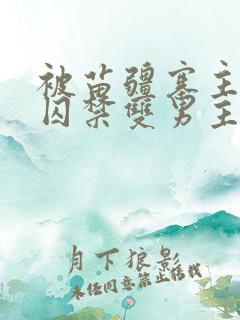 被苗疆寨主
囚禁雙男主
月下狼影
未经同意禁止转载